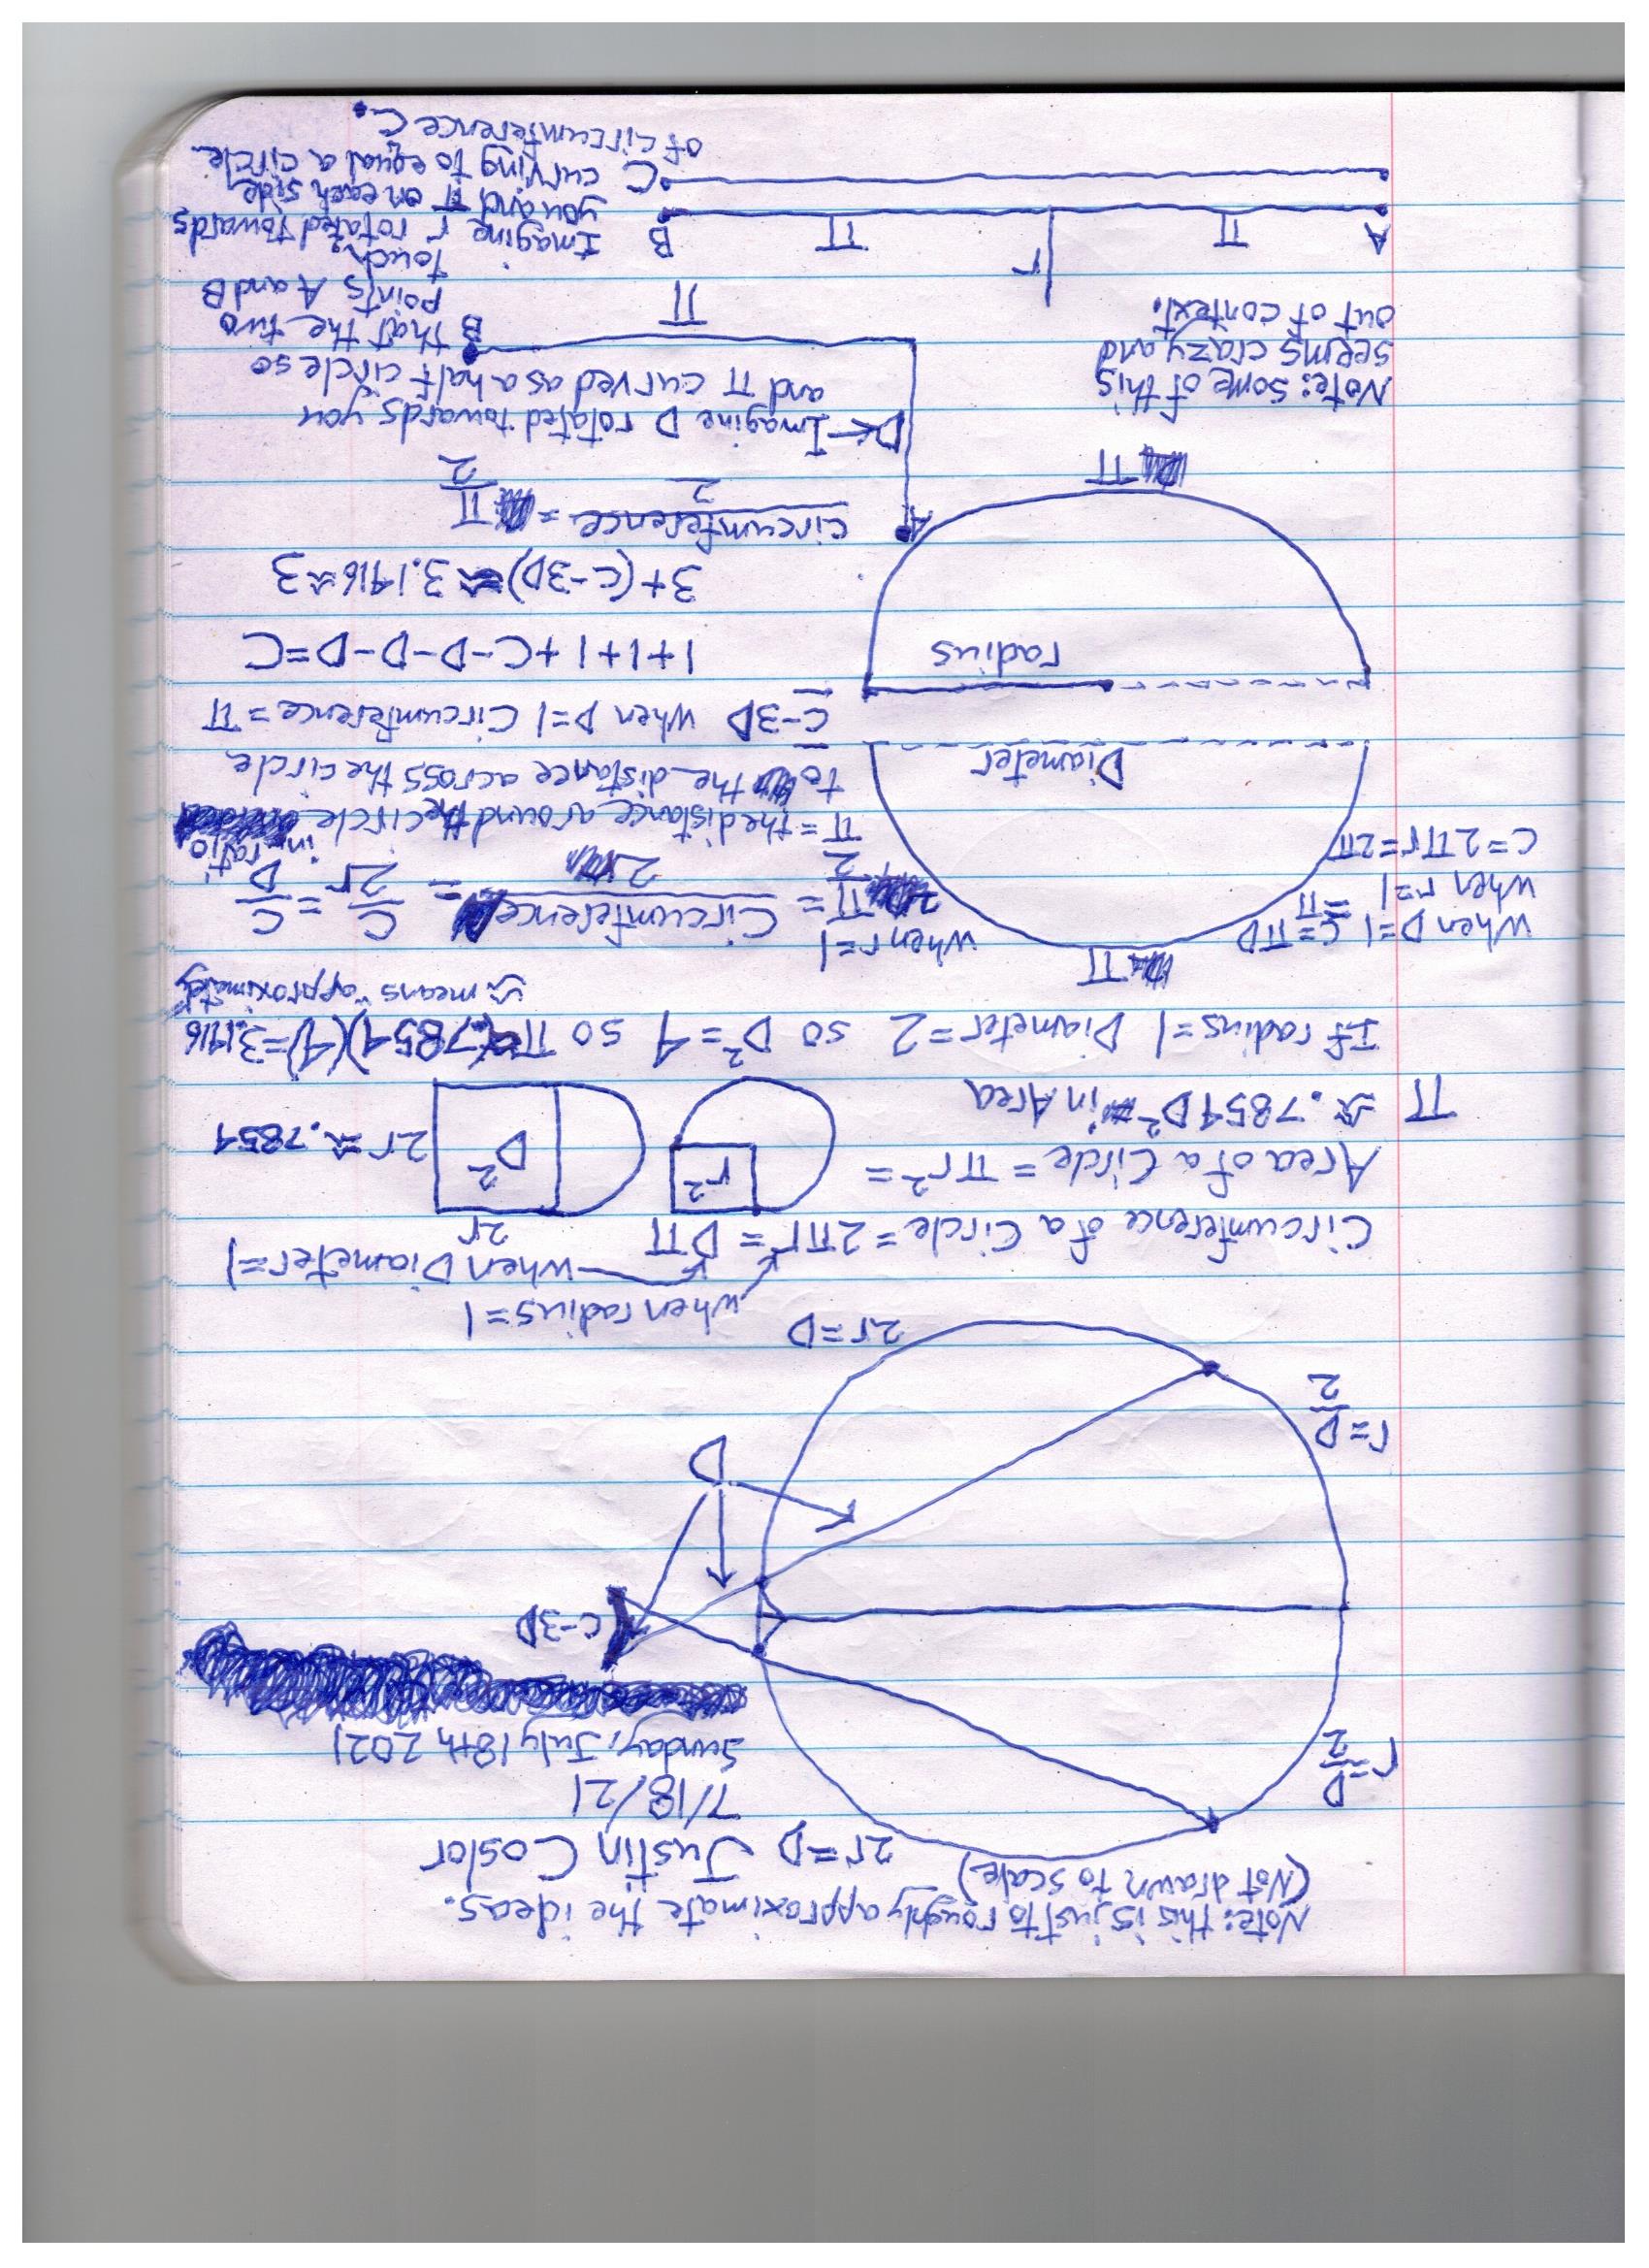 Note: this is just to roughly approximate the ideas.
(Not drawn to scale)
2r=D Justin Coslor
7/18/21
Sunday, July 18th, 2021
r=D/2
C-3D
D
r=D/2
2r=D
when radius=1
when Diameter=1
Circumference of a Circle = 2πr = Dπ
2r
Area of a Circle = πr² =
r²
D²
2r ≈ .7854
π ≈ .7854D² in Area
If radius=1 Diameter=2 so D²=4 so π≈(.7854)(4)=3.1416
≈ means "approximately"
π
when D=1 C=πD
=π
when r=1
C=2πr=2π
when r=1
π/2 = Circumference/2 = C/2r = C/D
π = the distance around the circle in ratio
to the distance across the circle
Diameter
C-3D when D=1 Circumference = π
radius
1+1+1+C-D-D-D=C
3+(C-3D)≈3.1416≈3
Circumference/2 = π/2
π
A
D ← Imagine D rotated towards you
and π curved as a half circle so
that the two
points A and B
touch.
B
π
Note: Some of this
seems crazy and
out of context.
r
A
π
π
B
Imagine r rotated towards
you and π on each side
curving to equal a circle
of circumference C.
C